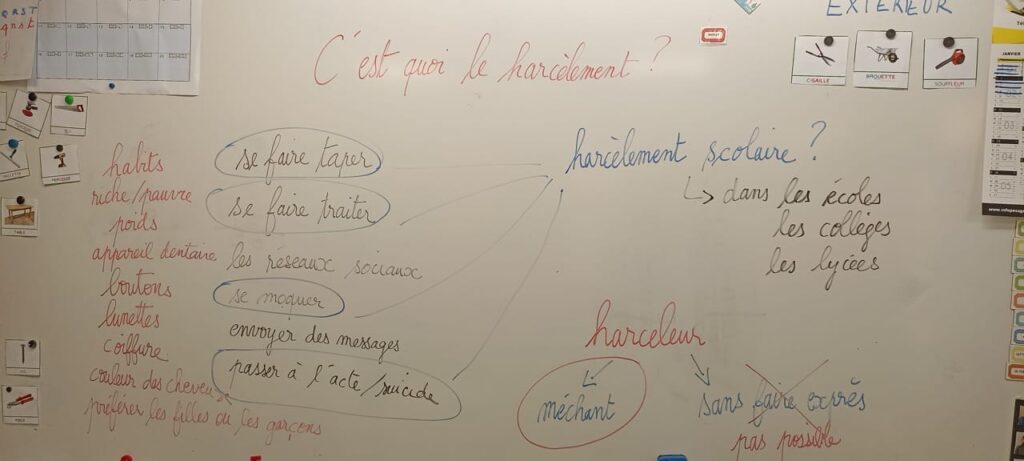 C'est quoi le harcèlement ?
EXTERIEUR
CISAILLE
BROUETTE
SOUFFLEUR
JANVIER
habits
riche/pauvre
poids
appareil dentaire
boutons
lunettes
coiffure
couleur des cheveux
préférer les filles ou les garçons
se faire taper
se faire traiter
les réseaux sociaux
se moquer
envoyer des messages
passer à l'acte/suicide
harcèlement scolaire ?
↳ dans les écoles
les collèges
les lycées
harceleur
méchant
sans faire exprès
pas possible
TABLE